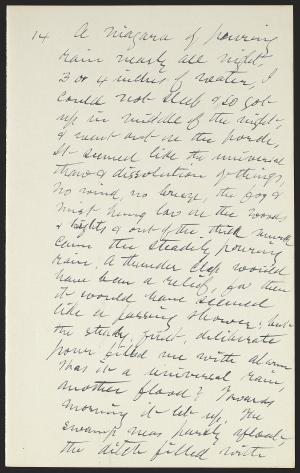 14 A niagara of pouring
rain nearly all night,
3 or 4 inches of water, I
could not sleep & so got
up in middle of the night,
& went out on the porch,
It seemed like the universal
thaw & dissolution of things,
no wind, no breeze, the fog &
mist hung low in the woods
& out of the thick murk
came the steady pouring
rain. A thunder clap would
have been a relief, for then
it would have seemed
like a passing shower; but
the steady, quiet, deliberate
pour filled me with alarm
Was it a universal rain,
another flood? Towards
morning it let up. The
swamp was purely afloat
the ditch filled with